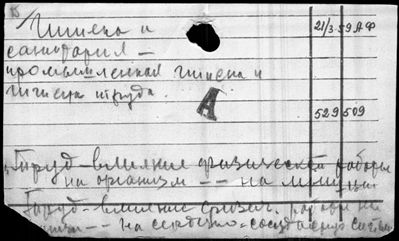 Гигиена и
санитария —
промышленная гигиена и
гигиена труда.
21/3 59 АФ
А
529 509
Труд - влияние физической работы
на организм — — на мышцы
Труд - влияние физич. работы на
— — на сердечно-сосудистую систему